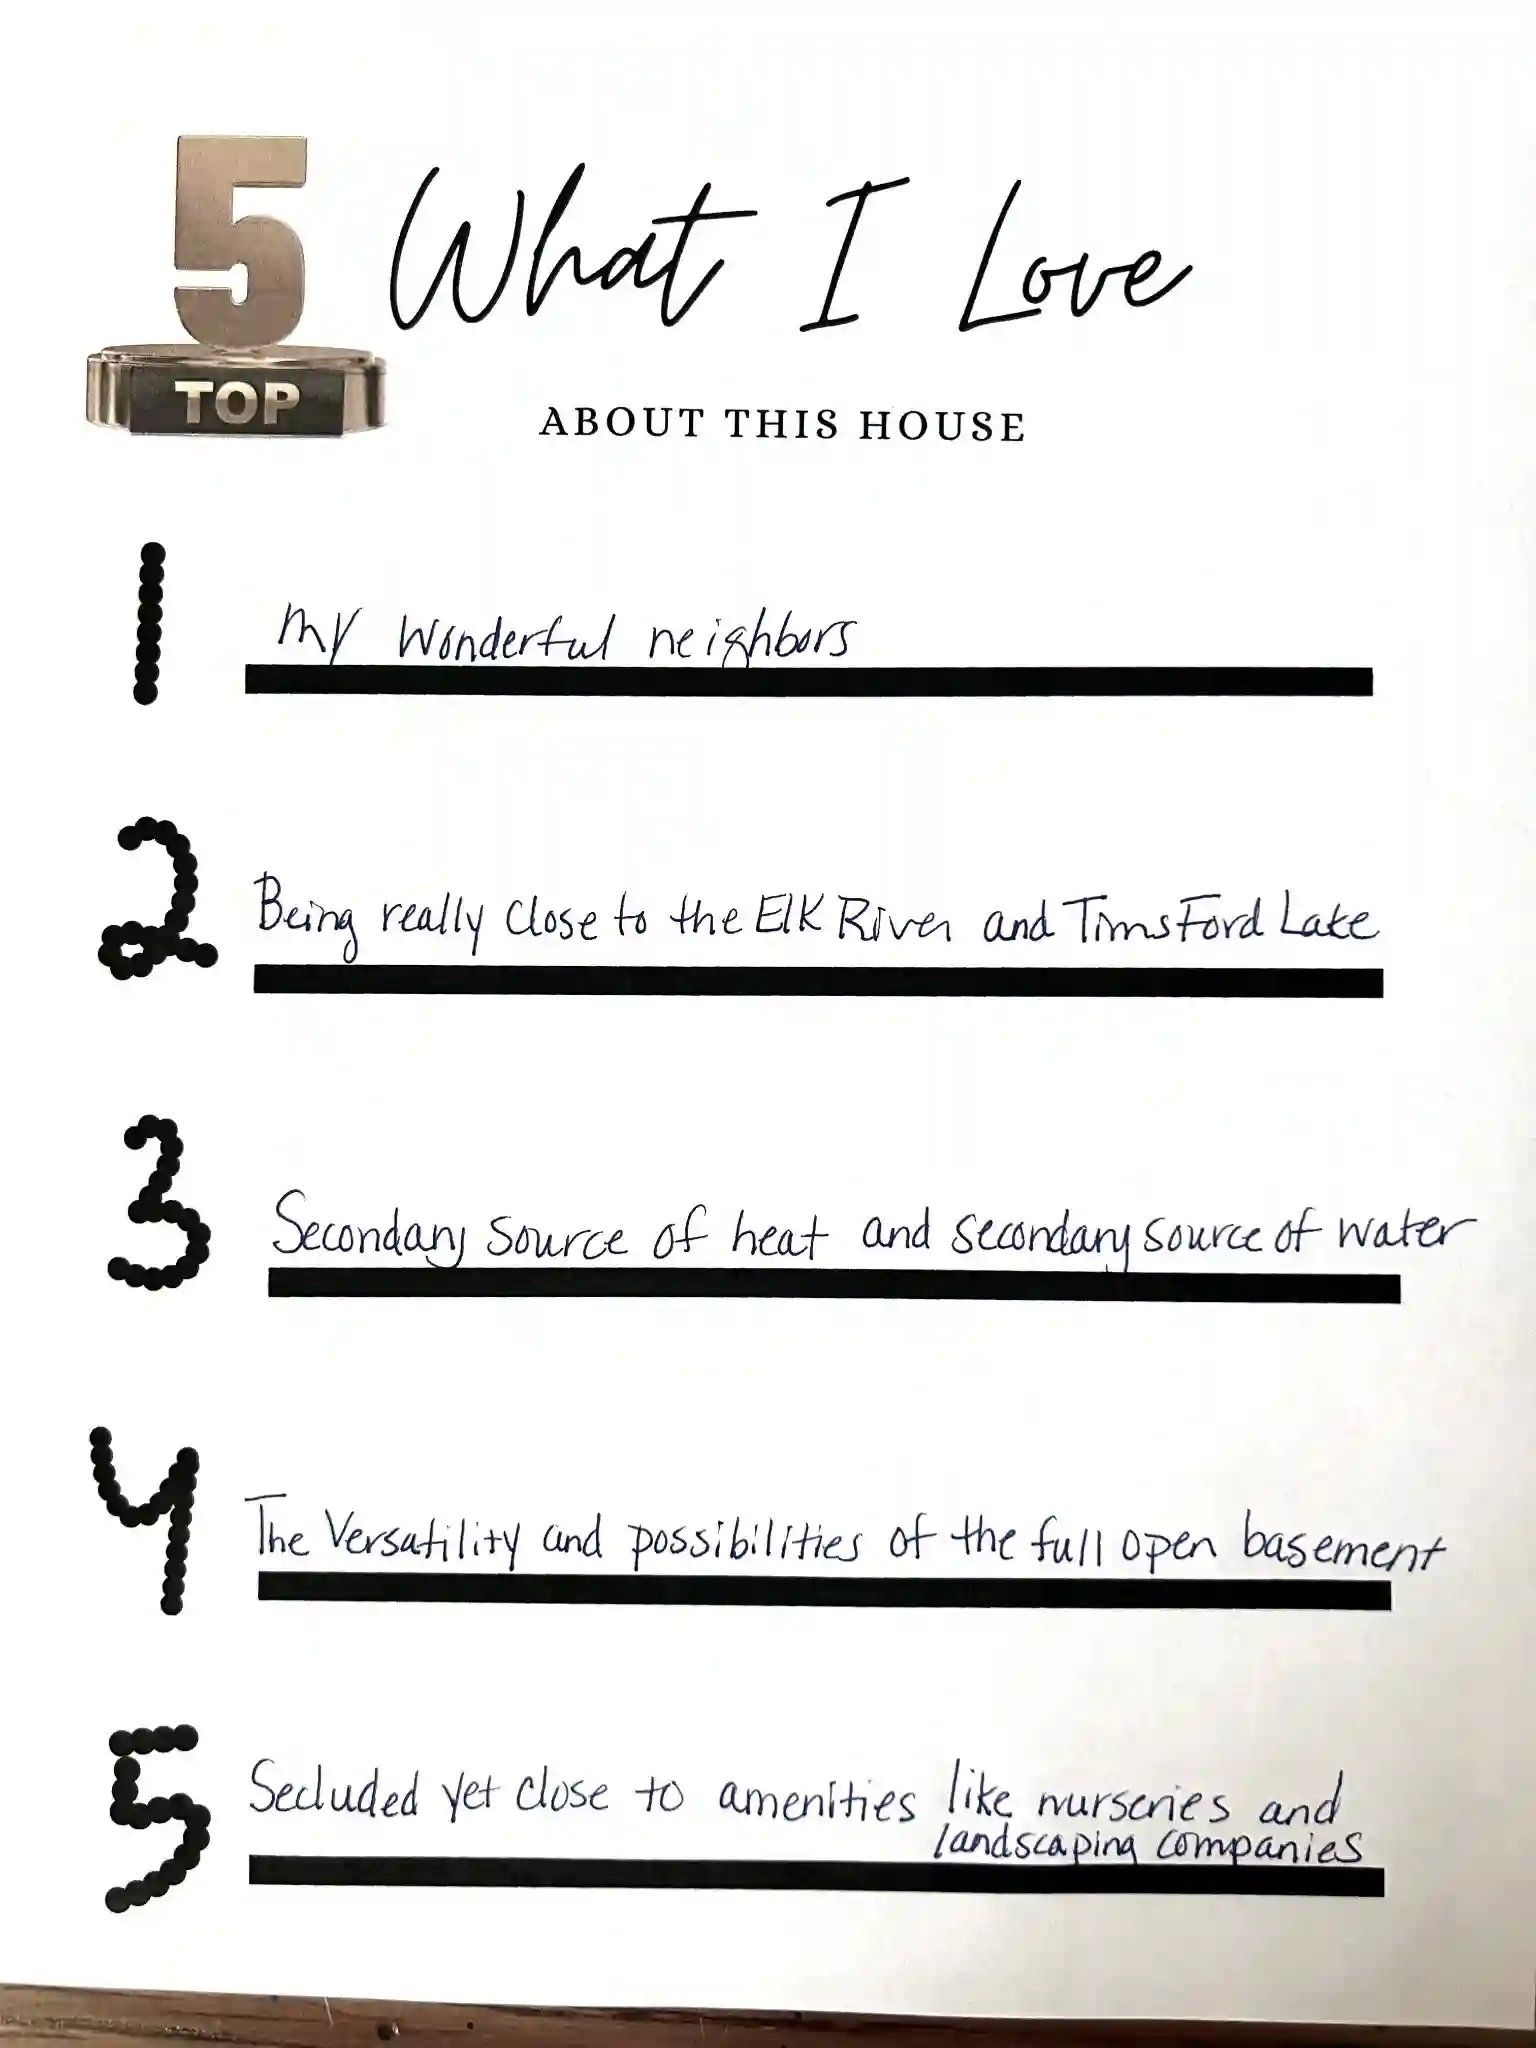 5
TOP
What I Love
ABOUT THIS HOUSE
1 My wonderful neighbors
2 Being really close to the Elk River and Tims Ford Lake
3 Secondary source of heat and secondary source of water
4 The Versatility and possibilities of the full open basement
5 Secluded yet close to amenities like nurseries and
landscaping companies